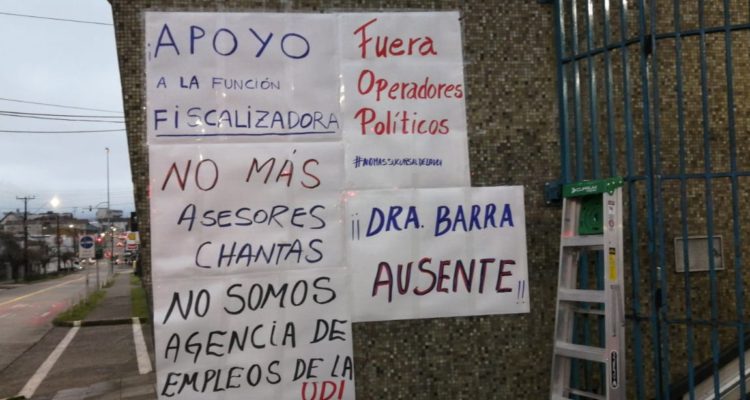 ¡APOYO
A LA FUNCIÓN
FISCALIZADORA
Fuera
Operadores
Políticos
#NOMASSUKURSALDELAUDI
NO MÁS
ASESORES
CHANTAS
¡¡DRA. BARRA
AUSENTE!!
NO SOMOS
AGENCIA DE
EMPLEOS DE LA
UDI